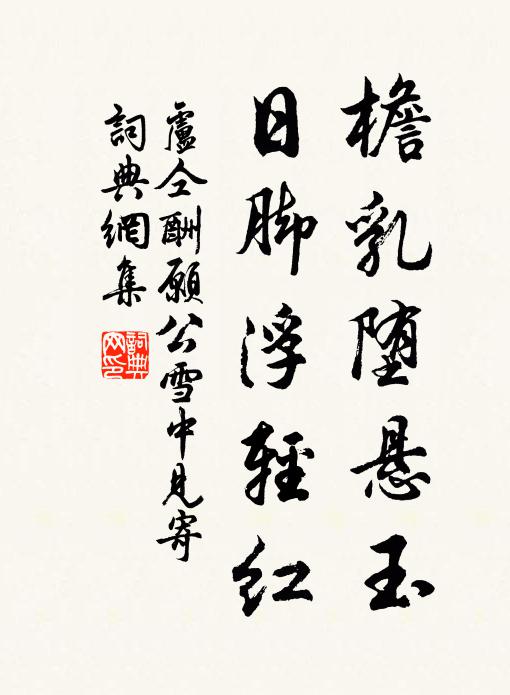 檐乳堕悬玉
日脚浮輕红
盧仝酬願公雪中見寄
詞典網集
詞典網印